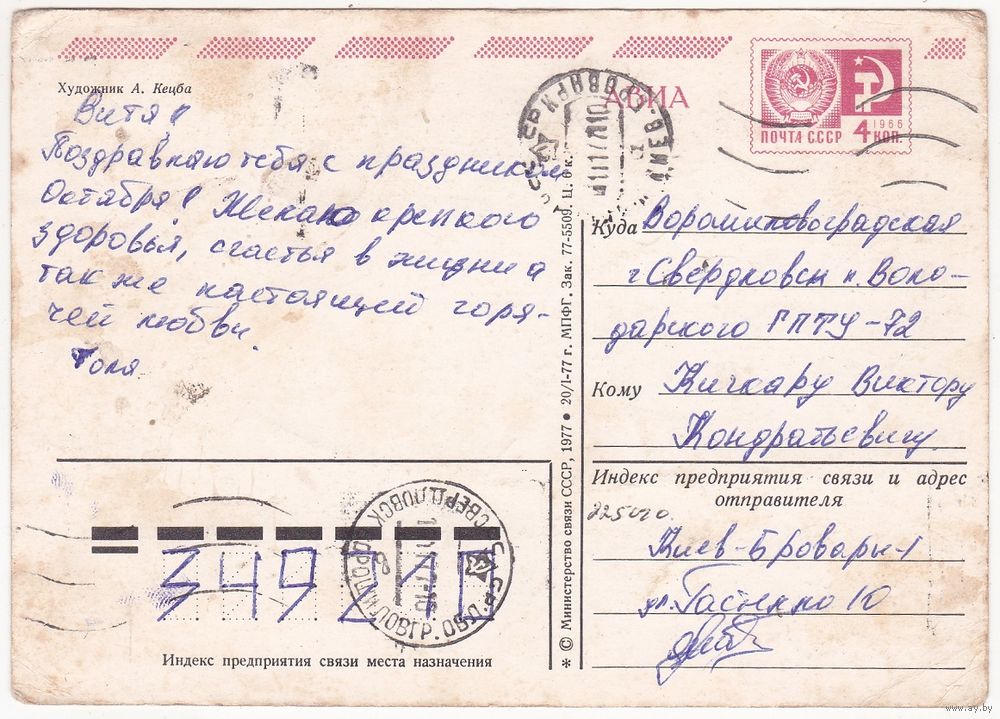 Художник А. Кецба
АВИА
1966
ПОЧТА СССР 4 КОП.
Витя!
Поздравляю тебя с праздником
Октября! Желаю крепкого
здоровья, счастья в жизни а
так же настоящий горя-
чей любви.
Толя.
Куда Ворошиловоградская
г Свердловск п. Воло-
дарского ГПТУ-72
Кому Кичкару Виктору
Кондратьевичу
Индекс предприятия связи и адрес
отправителя
225020
Киев-Бровары-1
ул. Гастелло 10
349211
Индекс предприятия связи места назначения
* © Министерство связи СССР, 1977 ● 20/I-77 г. МПФГ. Зак. 77-5509. Ц. 6 к.
СВЕРДЛОВСК ВОРОШИЛОВГР. ОБЛ.
www.ay.by